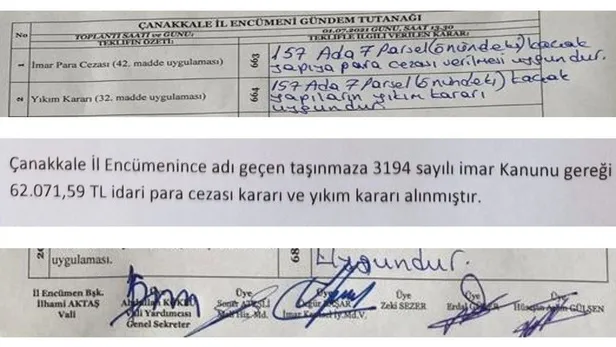 ÇANAKKALE İL ENCÜMENİ GÜNDEM TUTANAĞI
No TOPLANTI SAATİ ve GÜNÜ: 01.07.2021 GÜNÜ, SAAT 13:30
TEKLİFİN ÖZETİ: TEKLİFLE İLGİLİ VERİLEN KARAR:
1 İmar Para Cezası (42. madde uygulaması) 663 157 Ada 7 Parsel (önündeki) kaçak
yapıya para cezası verilmesi uygundur.
2 Yıkım Kararı (32. madde uygulaması) 664 157 Ada 7 Parsel (önündeki) kaçak
yapıların yıkım kararı
uygundur
Çanakkale İl Encümenince adı geçen taşınmaza 3194 sayılı imar Kanunu gereği
62.071,59 TL idari para cezası kararı ve yıkım kararı alınmıştır.
uygulaması. 68 Uygundur.
İl Encümen Bşk. Üye Üye Üye Üye
İlhami AKTAŞ Zeki SEZER Erdal Hüseyin GÜLSEN
Vali Vali Yardımcısı Mali Hiz. Md. İmar
Genel Sekreter